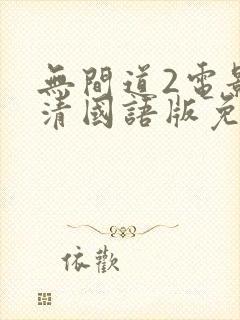 無間道2電影
清國語版免
依歡